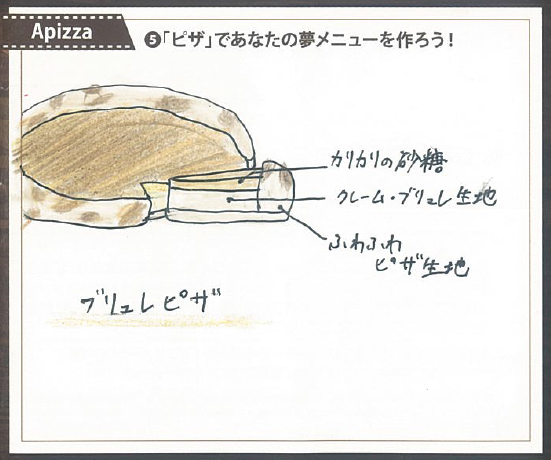 Apizza
❺「ピザ」であなたの夢メニューを作ろう!
カリカリの砂糖
クレーム・ブリュレ生地
ふわふわ
ピザ生地
ブリュレピザ